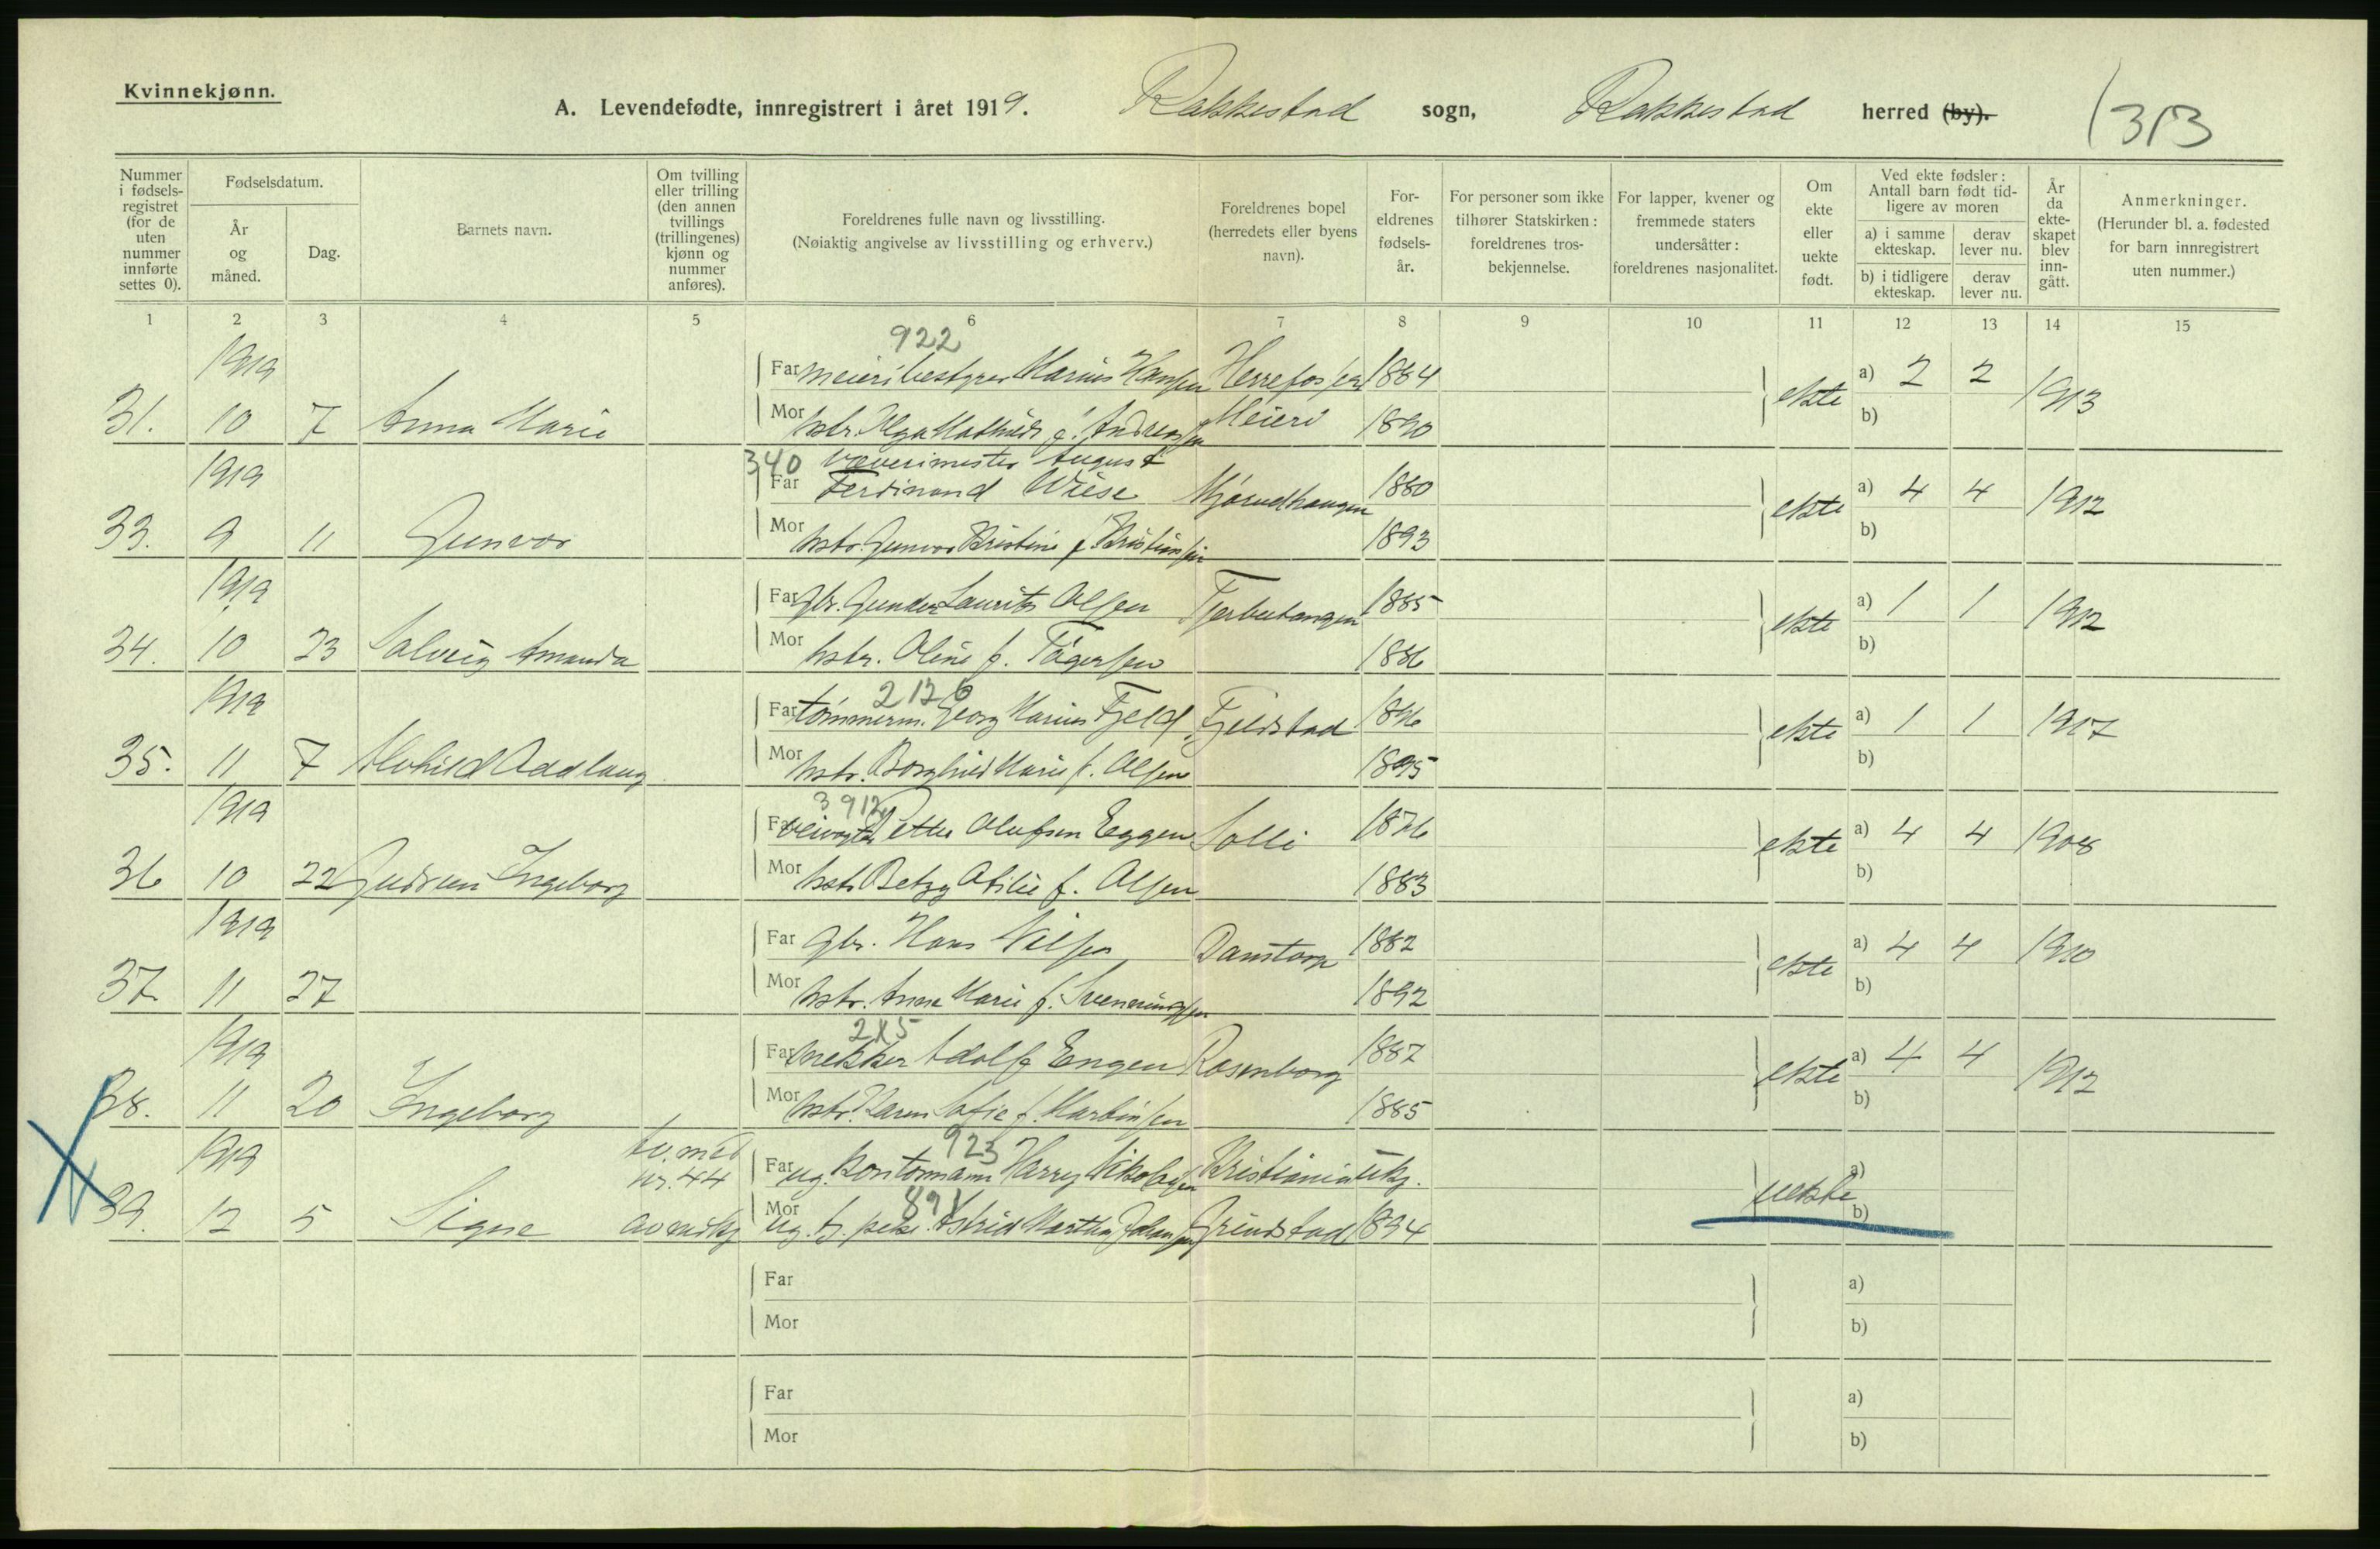 Kvinnekjønn.
A. Levendefødte, innregistrert i året 1919. Rakkestad sogn, Rakkestad herred (by).
1313
Nummer i fødselsregistret (for de uten nummer innførte settes 0).
Fødselsdatum.
År og måned.
Dag.
Barnets navn.
Om tvilling eller trilling (den annen tvillings (trillingenes) kjønn og nummer anføres).
Foreldrenes fulle navn og livsstilling.
(Nøiaktig angivelse av livsstilling og erhverv.)
Foreldrenes bopel (herredets eller byens navn).
Foreldrenes fødselsår.
For personer som ikke tilhører Statskirken: foreldrenes trosbekjennelse.
For lapper, kvener og fremmede staters undersåtter: foreldrenes nasjonalitet.
Om ekte eller uekte født.
Ved ekte fødsler: Antall barn født tidligere av moren
a) i samme ekteskap.
derav lever nu.
b) i tidligere ekteskap.
derav lever nu.
År da ekteskapet blev inngått.
Anmerkninger.
(Herunder bl. a. fødested for barn innregistrert uten nummer.)
1 2 3 4 5 6 7 8 9 10 11 12 13 14 15
922
1919 Far meieribestyrer Marius Hansen Herrefoss 1884 a) 2 2
31. 10 7 Anna Marie Mor hstr. Olga Mathilde f. Andreassen Meieri 1890 ekte b) 1913
340 væverimester August
1919 Far Ferdinand Wiese 1880 a) 4 4
33. 9 11 Gunvor Mor hstr. Gunvor Kristine f. Kristiansen 1893 ekte b) 1912
1919 Far gbr. Gunder Laurits Olsen 1885 a) 1 1
34. 10 23 Solveig Amanda Mor hstr. Oline f. Tøgersen 1886 ekte b) 1912
2126
1919 Far tømmerm. Georg Marius Fjeld Fjeldstad 1896 a) 1 1
35. 11 7 Alvhild Aadlaug Mor hstr. Borghild Marie f. Olsen 1895 ekte b) 1917
3912
1919 Far Petter Olufsen Eggen Solli 1876 a) 4 4
36 10 22 Gudrun Ingeborg Mor hstr. Betzy Otilie f. Olsen 1883 ekte b) 1908
1919 Far gbr. Hans Nilsen Danstorp 1882 a) 4 4
37. 11 27 Mor hstr. Anna Marie f. Sveningsen 1892 ekte b) 1910
215
1919 Far snekker Adolf Engen Rosenborg 1887 a) 4 4
38. 11 20 Ingeborg Mor hstr. Karen Sofie f. Martinsen 1885 ekte b) 1912
923
1919 tv. med nr. 44 Far ug. kontormann Harry Nikolaysen Kristiania ukj. a)
891
39. 12 5 Signe av mkj Mor ug. tj. pike Astrid Martha Johansen Grindstad 1894 uekte b)
Far a)
Mor b)
Far a)
Mor b)